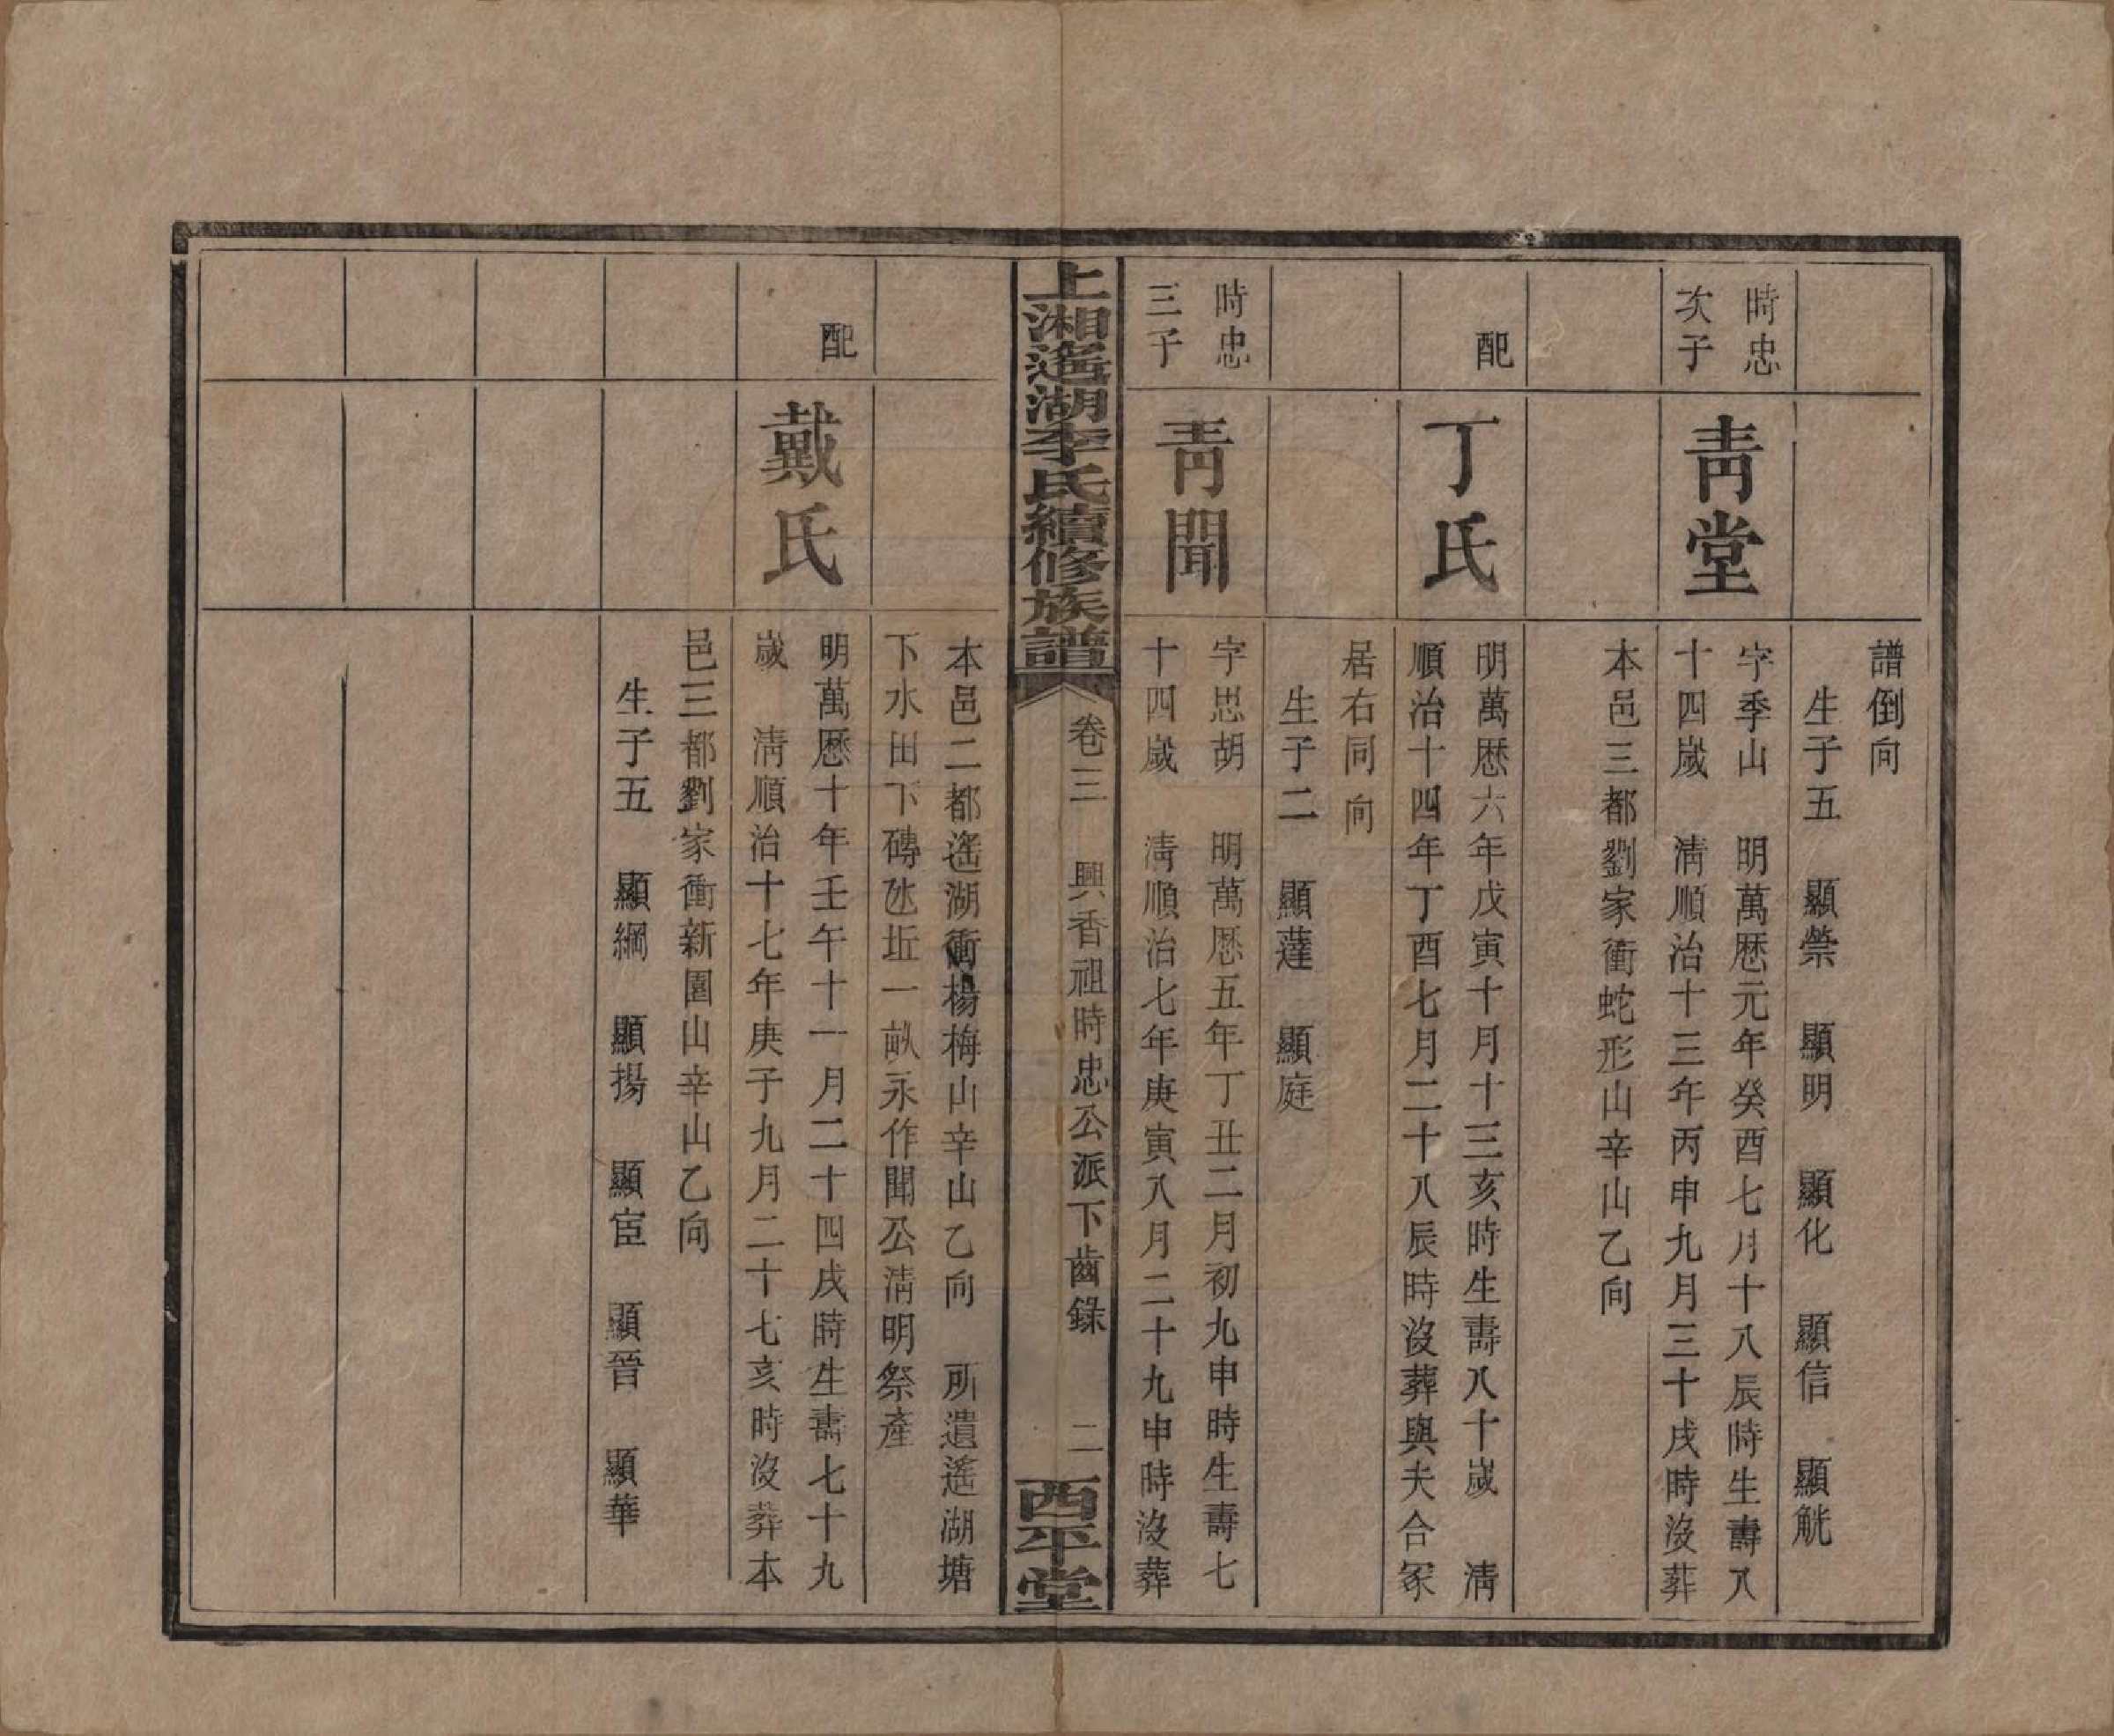 譜倒向
生子五　顯榮　顯明　顯化　顯信　顯觥
時忠
次子
青堂
字季山　明萬厯元年癸酉七月十八辰時生壽八
十四歲　清順治十三年丙申九月三十戌時沒葬
本邑三都劉家衝蛇形山辛山乙向
配
丁氏
明萬厯六年戊寅十月十三亥時生壽八十歲　清
順治十四年丁酉七月二十八辰時沒葬與夫合冢
居右同向
生子二　顯薘　顯庭
時忠
三子
青聞
字思胡　明萬厯五年丁丑二月初九申時生壽七
十四歲　清順治七年庚寅八月二十九申時沒葬
上湘遙湖李氏續修族譜
卷三　興香祖時忠公派下齒錄　二
西平堂
本邑二都遙湖衝楊梅山辛山乙向　所遺遙湖塘
下水田下磚氹坵一畝永作聞公清明祭產
配
戴氏
明萬厯十年壬午十一月二十四戌時生壽七十九
歲　清順治十七年庚子九月二十七亥時沒葬本
邑三都劉家衝新園山辛山乙向
生子五　顯綱　顯揚　顯宦　顯晉　顯華